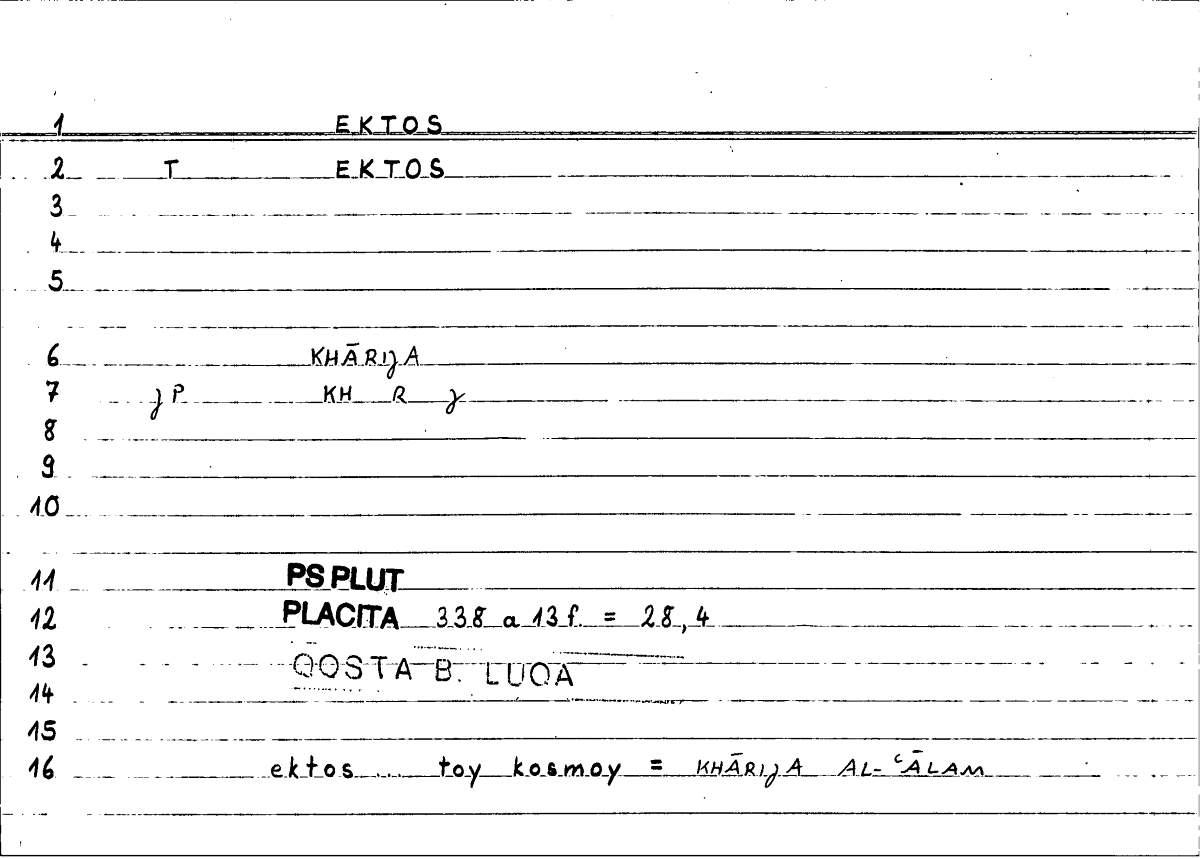 1 EKTOS
2 T EKTOS
3
4
5
6 KHĀRIJA
7 J P KH R J
8
9
10
11 PS PLUT
12 PLACITA 338 a 13 f. = 28,4
13 QOSTA B. LUQA
14
15
16 ektos ... toy kosmoy = KHĀRIJA AL-ʿĀLAM